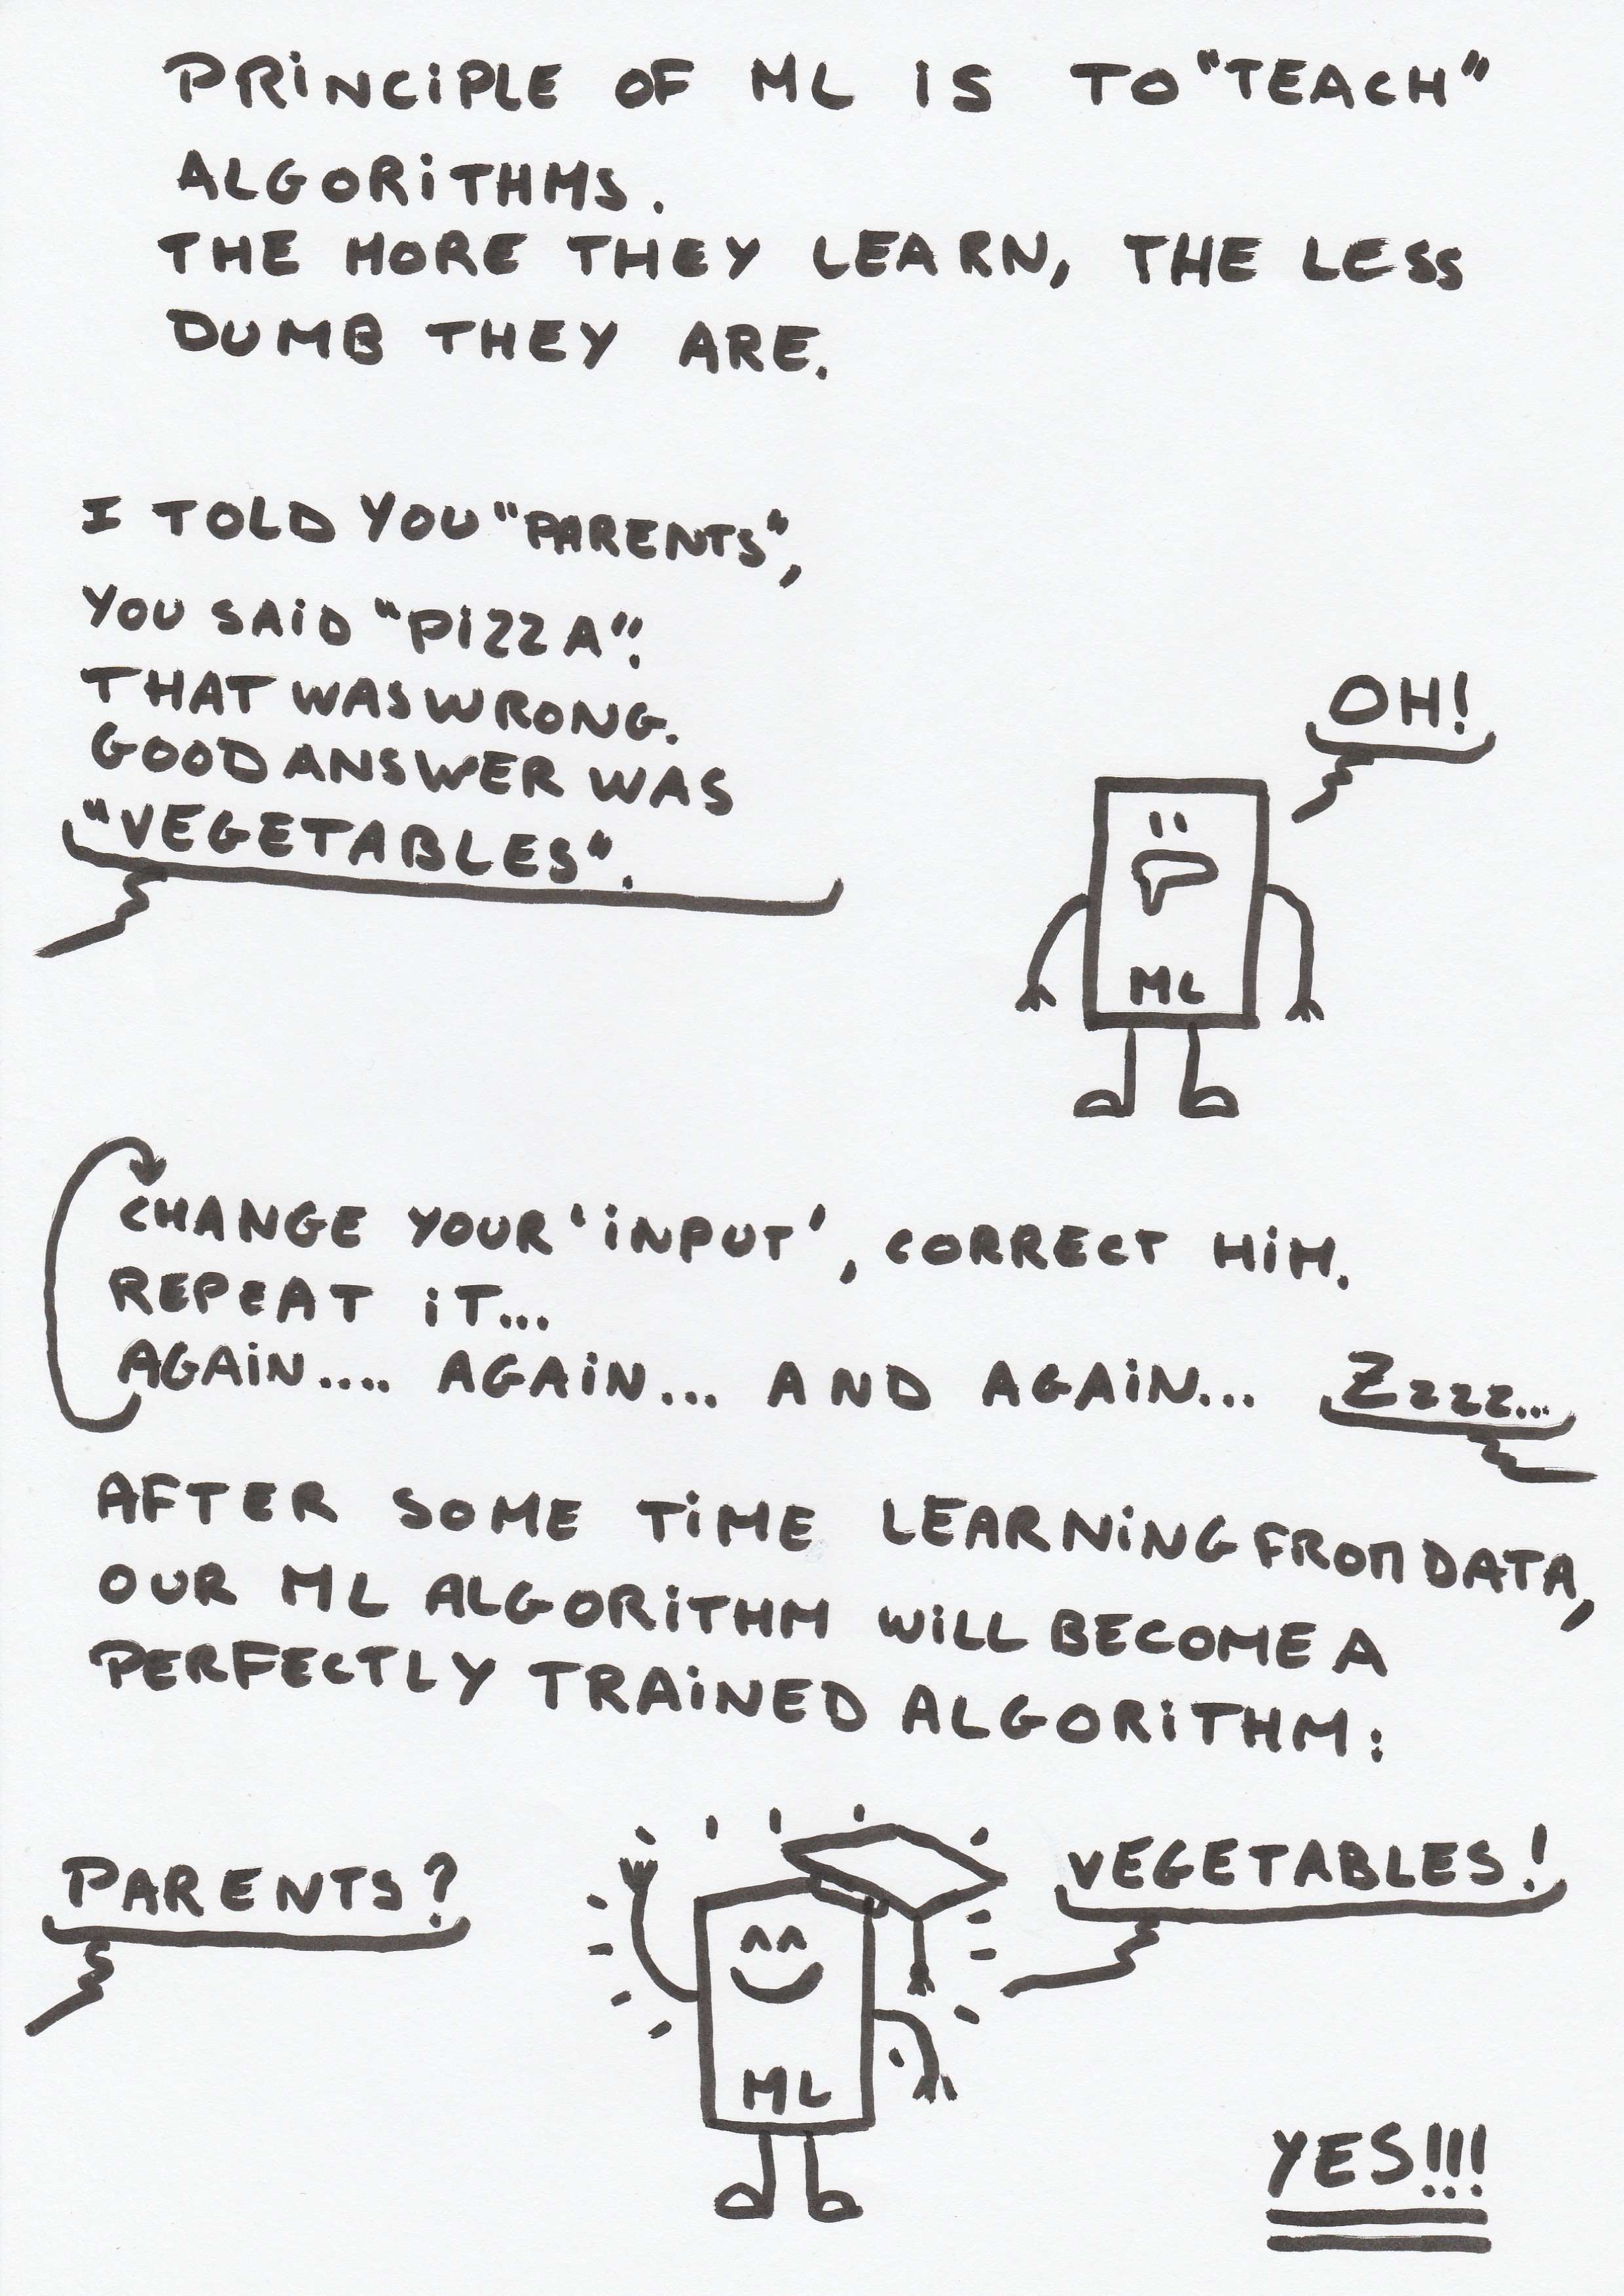 PRiNCiPLE OF ML IS TO "TEACH"
ALGORiTHMS.
THE MORE THEY LEARN, THE LESS
DUMB THEY ARE.
I TOLD YOU "PARENTS",
YOU SAiD "PiZZA".
THAT WAS WRONG.
GOOD ANSWER WAS
"VEGETABLES".
OH!
ML
CHANGE YOUR 'iNPUT', CORRECT HiM.
REPEAT iT...
AGAiN.... AGAiN... AND AGAiN...
Zzzzz...
AFTER SOME TiME LEARNiNG FROM DATA,
OUR ML ALGORiTHM WiLL BECOME A
PERFECTLY TRAiNED ALGORiTHM:
PARENTS?
VEGETABLES!
ML
YES!!!